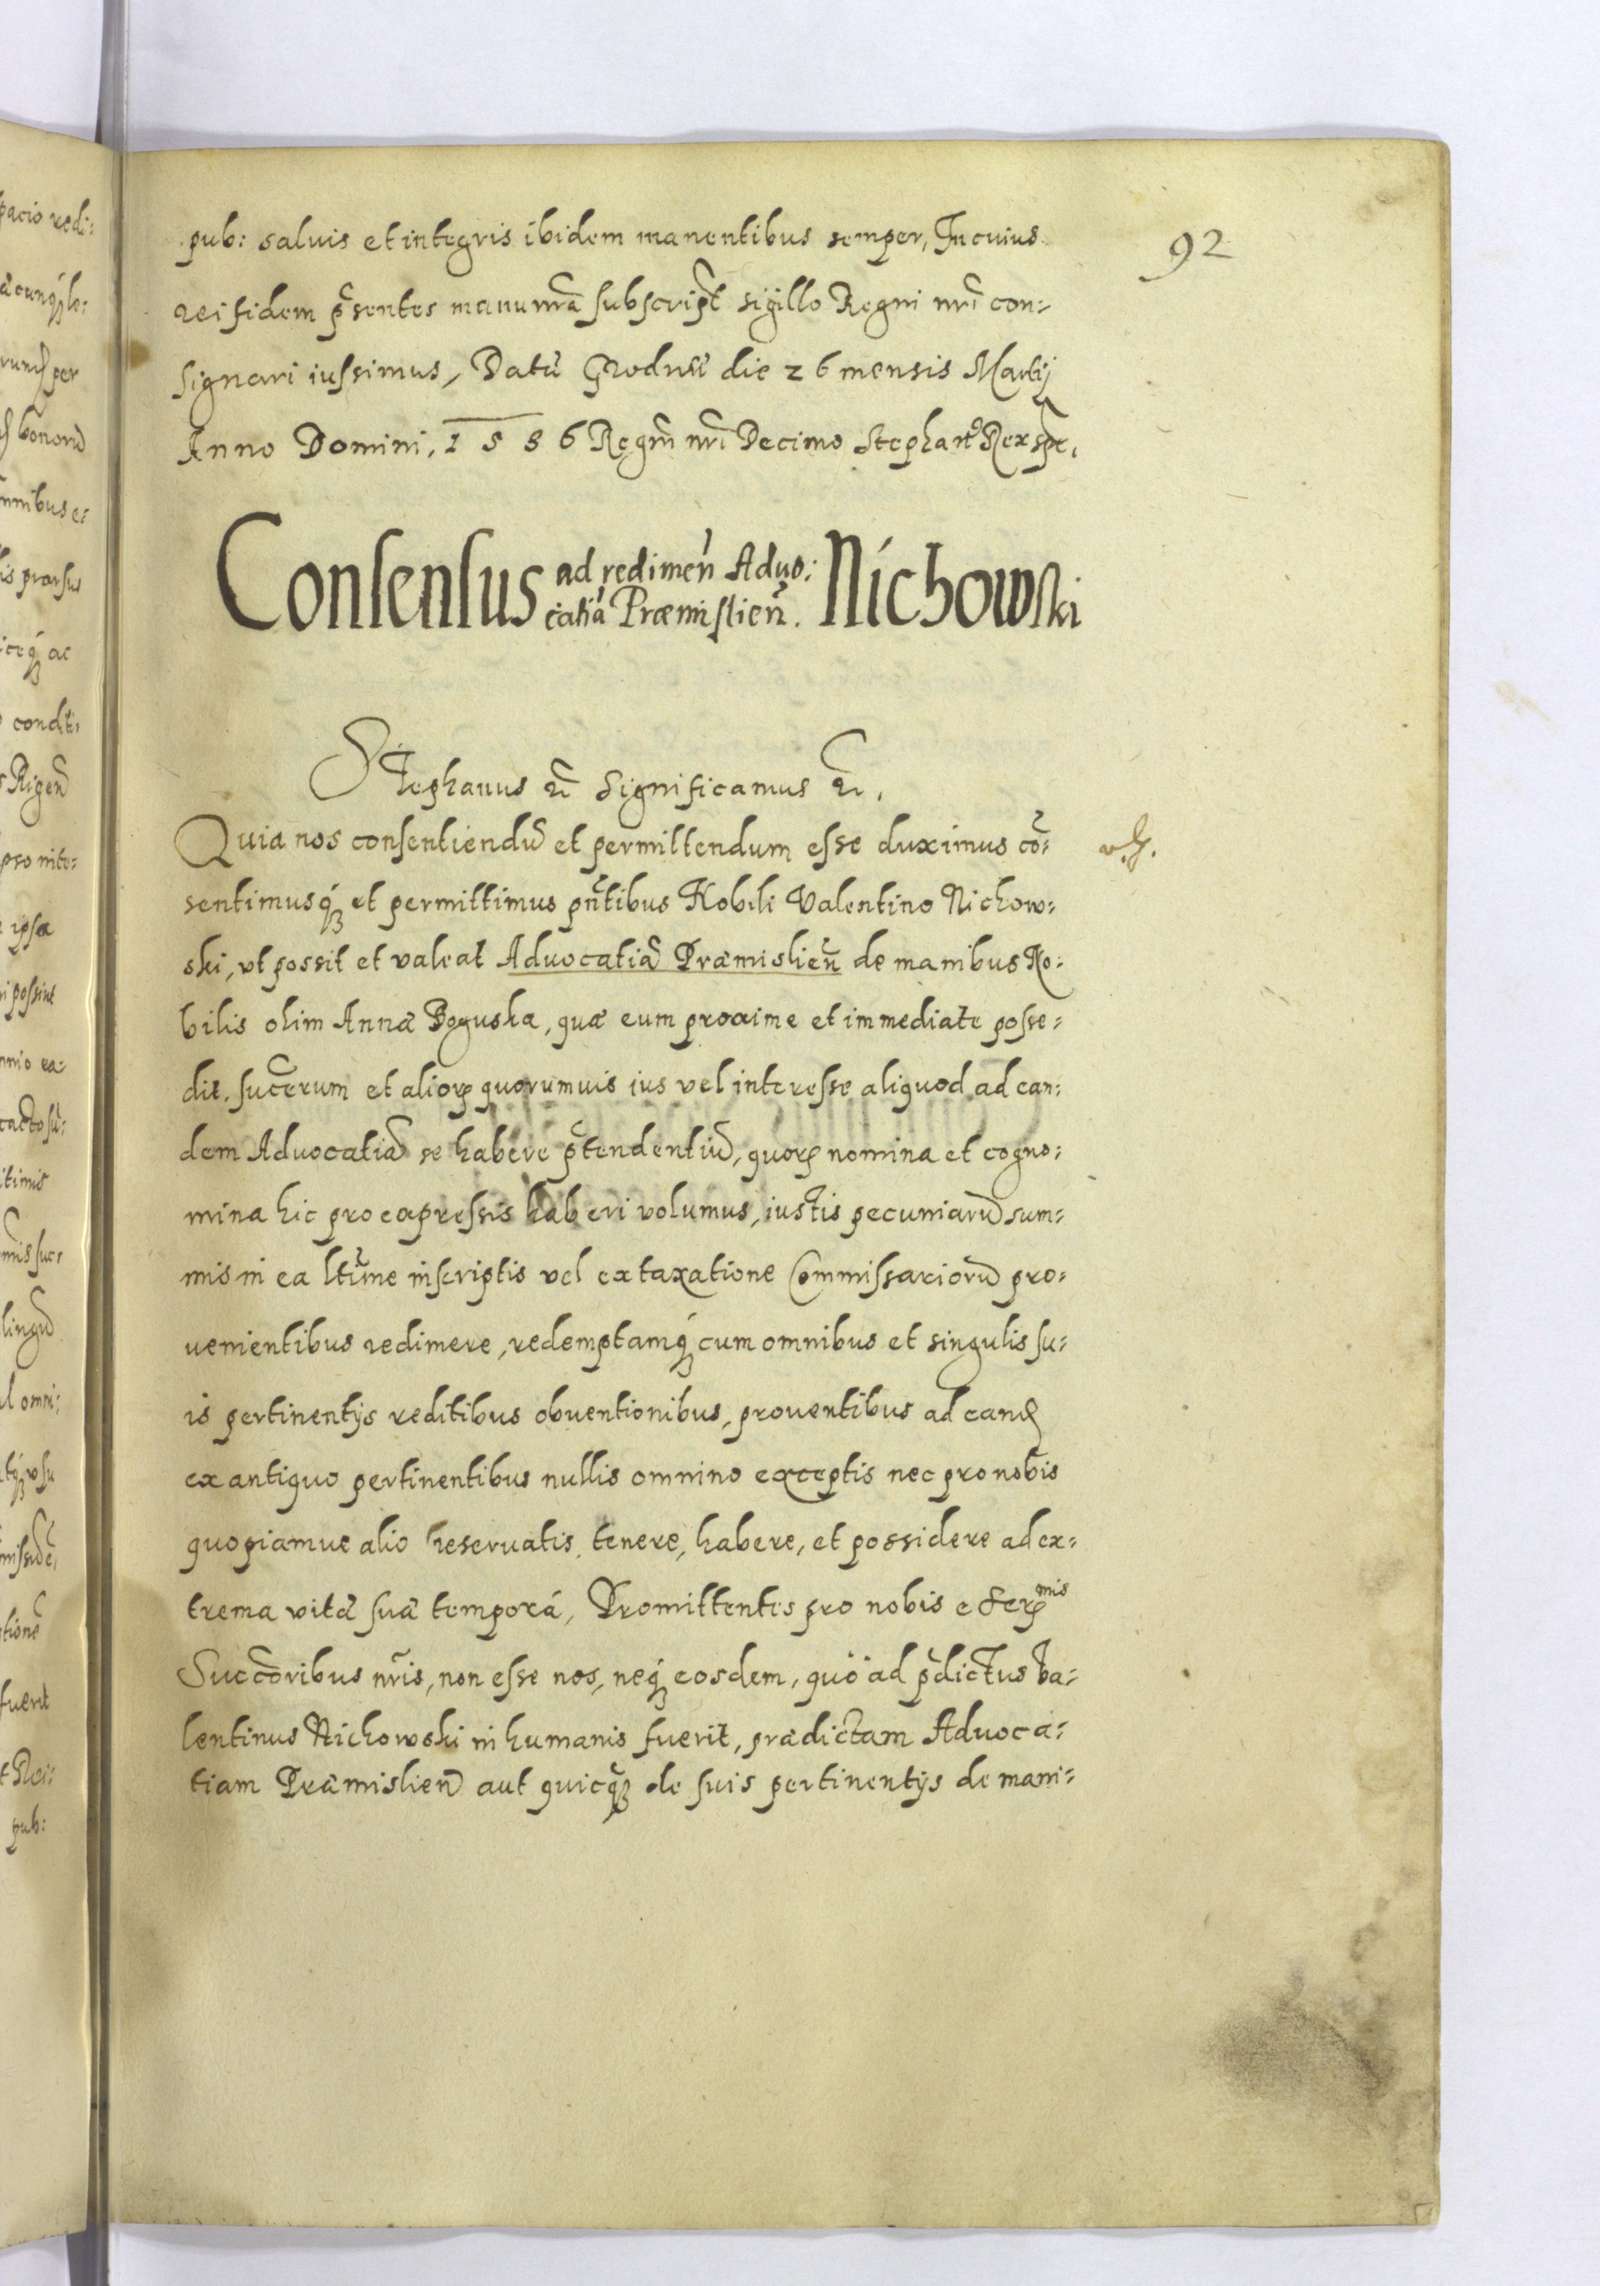 92
pub: saluis et integris ibidem manentibus semper, In cuius
rei fidem p̃sentes manu nr̃a subscrip̃t sigillo Regni nr̃i con-
signari iussimus, Datũ Grodnæ die 26 mensis Martij
Anno Domini, 1586 Regni nr̃i Decimo Stephanꝰ Rex sp̃t,
Consensus ad redimeñ Aduo: catiã Præmisliẽn. Nichowski
Stephanus etc̃ Significamus etc̃.
Quia nos consentiendũ et permittendum esse duximus cõ-
sentimusq́ꝫ et permittimus pñtibus Nobili Valentino Nichow-
ski, vt possit et valeat Aduocatiã Præmislieñ de manibus No-
bilis olim Annæ Boguska, quæ eum proxime et immediate posse-
dit. succ̃erum et alioꝝ quorumuis ius vel interesse aliquod ad ean-
dem Aduocatiã se habere p̃tendentiũ, quoꝝ nomina et cogno-
mina hic pro expressis haberi volumus, iustis pecuniarũ sum-
mis in ea ltĩme inscriptis vel ex taxatione Commissariorũ pro-
uenientibus redimere, redemptamq́ꝫ cum omnibus et singulis su-
is pertinentijs reditibus obuentionibus, prouentibus ad eand̃
ex antiquo pertinentibus nullis omnino exceptis nec pro nobis
quopiamue alio reseruatis, tenere, habere, et possidere ad ex-
trema vitæ suæ tempora, Promittentes pro nobis et Serꝝmis
Succ̃oribus nr̃is, non esse nos, neq́ꝫ eosdem, quo ad p̃dictus Va-
lentinus Nichowski in humanis fuerit, prædictam Aduoca-
tiam Præmislieñ aut quicq̃ꝫ de suis pertinentijs de mani-